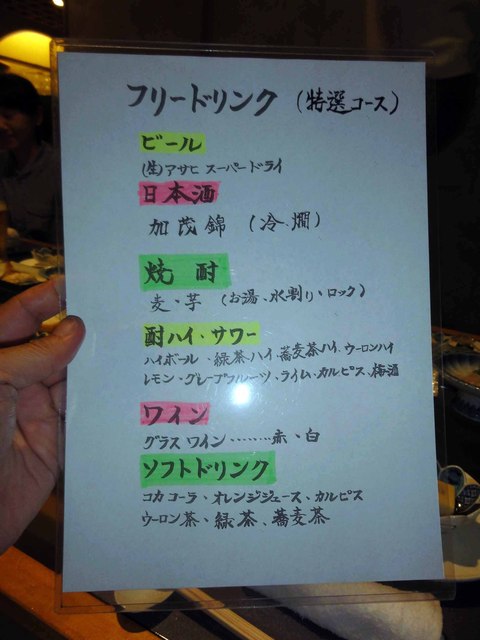 フリードリンク (特選コース)
ビール
(生)アサヒ スーパードライ
日本酒
加茂錦 (冷、燗)
焼酎
麦、芋 (お湯、水割り、ロック)
酎ハイ・サワー
ハイボール、緑茶ハイ、蕎麦茶ハイ、ウーロンハイ
レモン・グレープフルーツ・ライム・カルピス、梅酒
ワイン
グラスワイン………赤、白
ソフトドリンク
コカコーラ、オレンジジュース、カルピス
ウーロン茶、緑茶、蕎麦茶